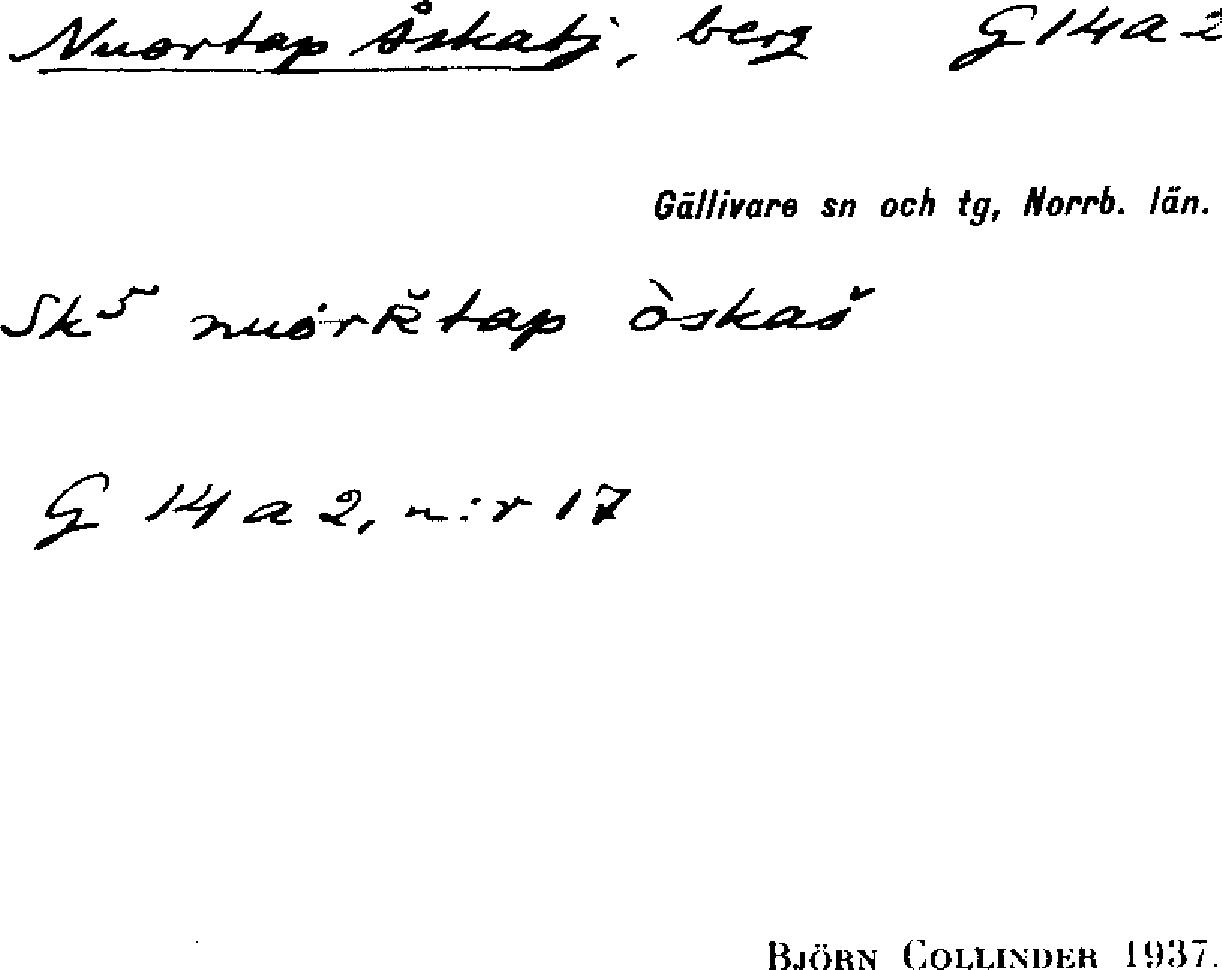 Nuortap Åskatj, berg G14a2
Gällivare sn och tg, Norrb. län.
Sk5 nuòrʀ̌tap òskaš
G 14 a 2, n:r 17
BJÖRN COLLINDER 1937.